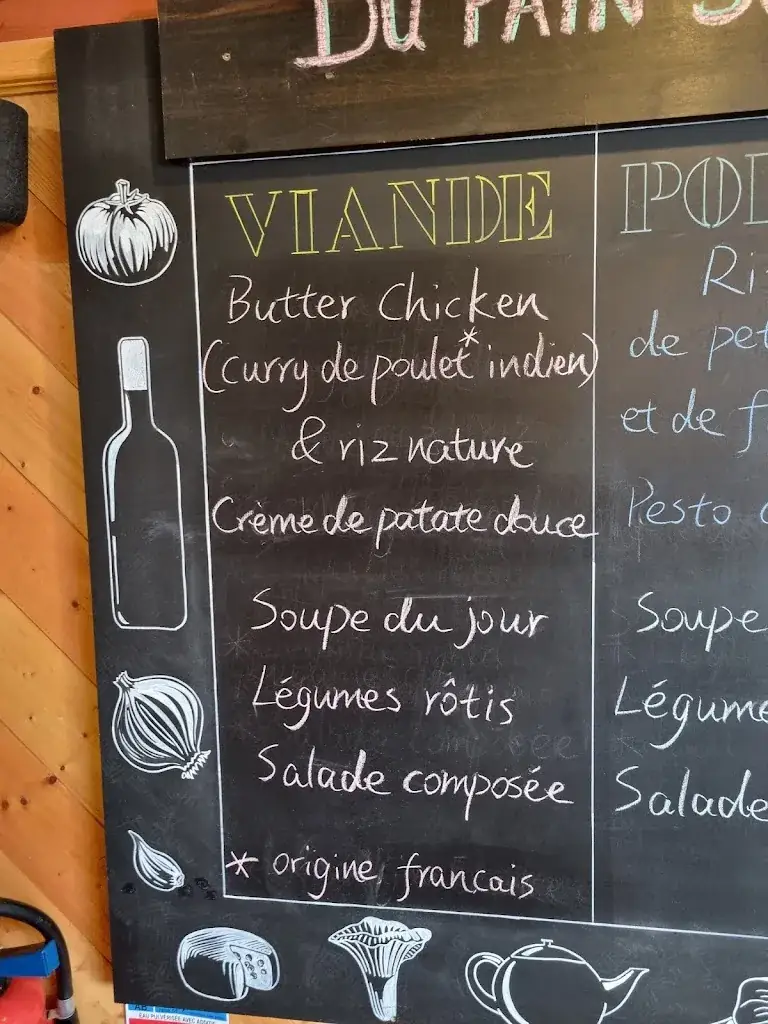 DU PAIN
VIANDE
Butter Chicken
(curry de poulet* indien)
& riz nature
Crème de patate douce
Soupe du jour
Légumes rôtis
Salade composée
* origine francais
Ri
de pet
et de f
Pesto
Soupe
Légume
Salade
EAU PULVÉRISÉE AVEC ADDITIF